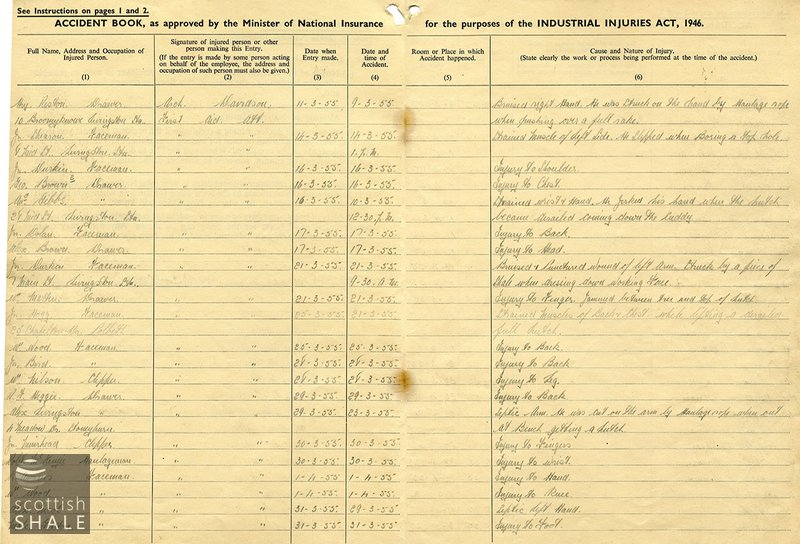 See Instructions on pages 1 and 2.
ACCIDENT BOOK, as approved by the Minister of National Insurance for the purposes of the INDUSTRIAL INJURIES ACT, 1946.
Full Name, Address and Occupation of Injured Person.
(1)
Signature of injured person or other person making this Entry.
(If the entry is made by some person acting on behalf of the employee, the address and occupation of such person must also be given.)
(2)
Date when Entry made.
(3)
Date and time of Accident.
(4)
Room or Place in which Accident happened.
(5)
Cause and Nature of Injury.
(State clearly the work or process being performed at the time of the accident.)
(6)
Drawer Arch. Davidson 11-3-55 9-3-55. Bruised right Hand. He was struck on the hand by Haulage rope
10 Livingston Stn. First Aid Att. when pushing over a full rake.
Faceman " " 14-3-55 14-3-55 Strained Muscle of Left Side. He slipped when Boring a Top hole.
Livingston. Stn. 1. P.M.
Jn. Durkin. Faceman. " " 16-3-55 16-3-55. Injury to Shoulder.
Geo. Brown Drawer " " 16-3-55. 16-3-55. Injury to Chest.
Gibbs " " " 16-3-55 10-3-55. Strained wrist & Hand. He jerked his hand when the hutch
Livingston Stn. 12-30. P.M. became derailed coming down the Cuddy.
Jn. Dolan Faceman " " 17-3-55 17-3-55. Injury to Back.
Alex Brown Drawer " " 17-3-55. 17-3-55. Injury to Head.
Jn. Durkin Faceman. " " 21-3-55 21-3-55. Bruised & Punctured wound of left Arm. Struck by a piece of
7 Main St. Livingston Stn. 9-30. A.M. Shale when dressing down working Face.
Wm Drawer " " 21-3-55. 21-3-55. Injury to Finger. Jammed between tree and top of hutch.
Jn. Hogg Faceman " " 25-3-55. 21-3-55. Strained Muscles of Back & Chest while lifting a derailed
full hutch.
Wm Wood Faceman. " " 25-3-55. 25-3-55. Injury to Back.
Jn. Bird. " " " 28-3-55. 28-3-55. Injury to Back
Wm Wilson Clipper. " " 28-3-55. 28-3-55. Injury to Leg.
Drawer " " 29-3-55. 29-3-55. Injury to Back
Alex Livingston " " " 29-3-55 23-3-55. Septic Arm. He was cut on the arm by Haulage rope when out
at Bench getting a hutch.
Jn. Muirhead Clipper. " " 30-3-55. 30-3-55. Injury to Fingers
Haulageman " " 30-3-55. 30-3-55. Injury to wrist.
Faceman. " " 1-4-55. 1-4-55. Injury to Hand.
Wm Wood " " " 1-4-55. 1-4-55. Injury to Knee.
" " " 31-3-55. 29-3-55. Septic left Hand.
" " " 31-3-55. 31-3-55. Injury to Foot.
scottish
SHALE